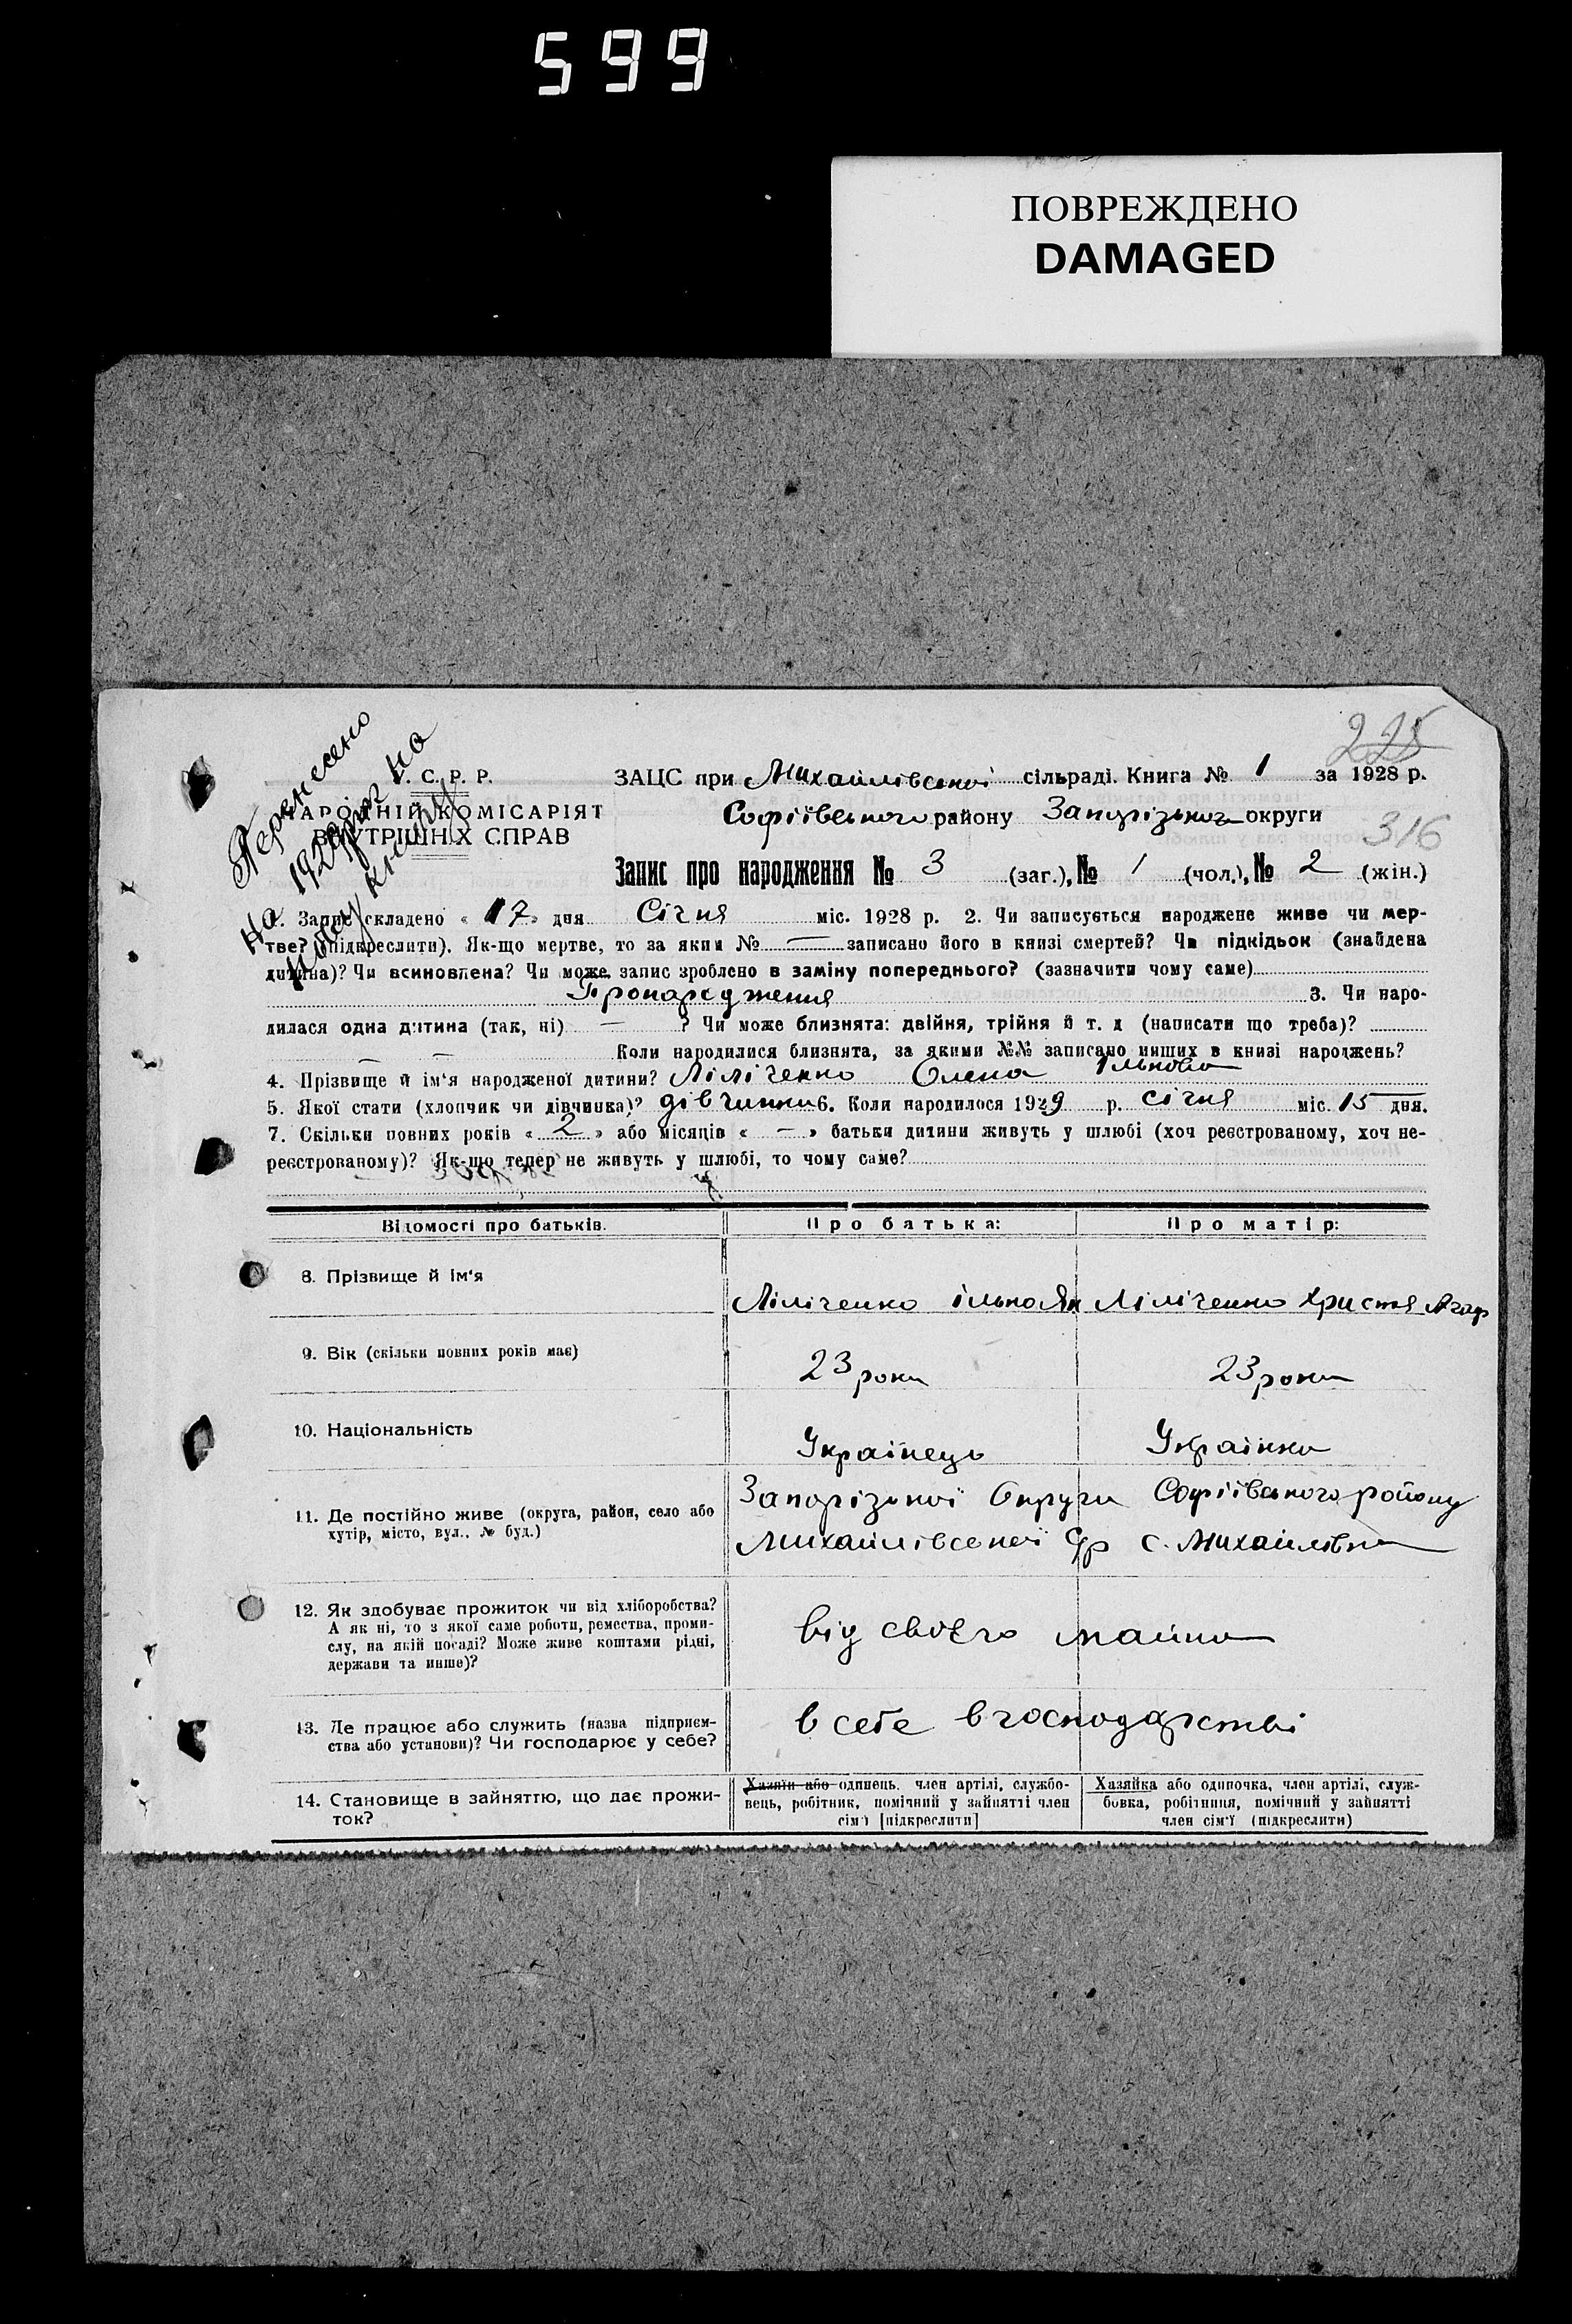 599
ПОВРЕЖДЕНО
DAMAGED
225
316
Перенесено
на 1929 рік на
нову книгу
У. С. Р. Р.
НАРОДНІЙ КОМІСАРІЯТ
ВНУТРІШНІХ СПРАВ
ЗАЦС при Михайлівській сільраді. Книга № 1 за 1928 р.
Софіївського району Запорізької округи
Запис про народження № 3 (заг.), № 1 (чол.), № 2 (жін.)
1. Запис складено « 17 » дня Січня міс. 1928 р. 2. Чи записується народжене живе чи мер-
тве? (підкреслити). Як-що мертве, то за яким № — записано його в книзі смертей? Чи підкідьок (знайдена
дитина)? Чи всиновлена? Чи може запис зроблено в заміну попереднього? (зазначити чому саме)
Пронародження 3. Чи наро-
дилася одна дитина (так, ні) — ? Чи може близнята: двійня, трійня й т. д (написати що треба)?
— — Коли народилися близнята, за якими №№ записано инших в книзі народжень?
4. Прізвище й ім'я народженої дитини? Ліліченко Олена Ількова
5. Якої стати (хлопчик чи дівчинка)? дівчинки 6. Коли народилося 1929 р. січня міс. 15 дня.
7. Скільки повних років « 2 » або місяців « — » батьки дитини живуть у шлюбі (хоч реєстрованому, хоч не-
реєстрованому)? Як-що тепер не живуть у шлюбі, то чому саме?
Відомості про батьків. Про батька: Про матір:
8. Прізвище й ім'я
Ліліченко ілько Як Ліліченко Христя Агаф
9. Вік (скільки повних років має)
23 роки 23 роки
10. Національність
Українець Українка
11. Де постійно живе (округа, район, село або
хутір, місто, вул., № буд.)
Запорізької Округи Софіївського району
Михайлівської С/р с. Михайлівка
12. Як здобуває прожиток чи від хліборобства?
А як ні, то з якої саме роботи, ремества, проми-
слу, на якій посаді? Може живе коштами рідні,
держави та инше)?
від свого майна
13. Де працює або служить (назва підприєм-
ства або установи)? Чи господарює у себе?
в себе в господарстві
14. Становище в зайняттю, що дає прожи-
ток?
Хазяїн або одинець, член артілі, службо-
вець, робітник, помічний у зайнятті член
сім'ї [підкреслити]
Хазяйка або одиночка, член артілі, служ-
бовка, робітниця, помічний у зайнятті
член сім'ї (підкреслити)